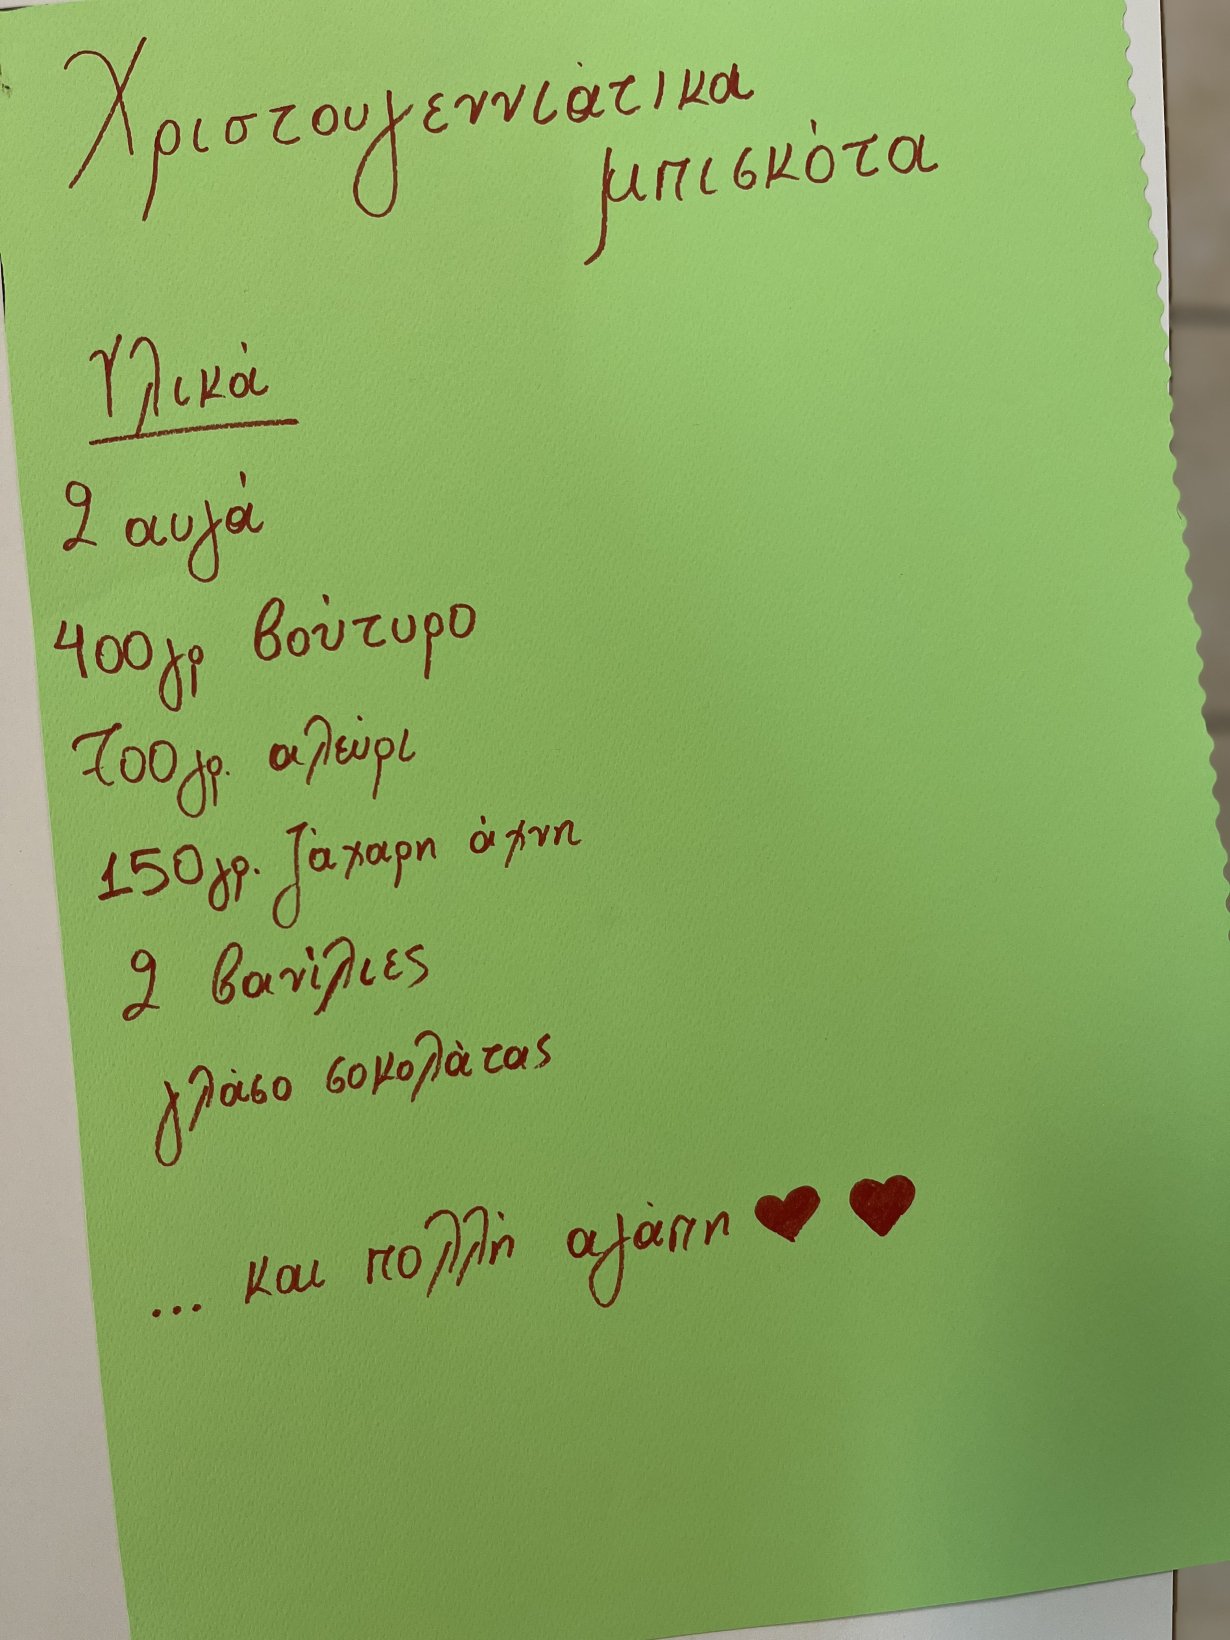 Χριστουγεννιάτικα
μπισκότα
Υλικά
2 αυγά
400γρ βούτυρο
700γρ. αλεύρι
150γρ. ζάχαρη άχνη
2 βανίλιες
γλάσο σοκολάτας
... και πολλή αγάπη ♥ ♥